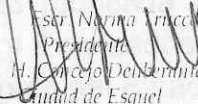 Escr. Norma Trucco
Presidente
H. Concejo Deliberante
Ciudad de Esquel